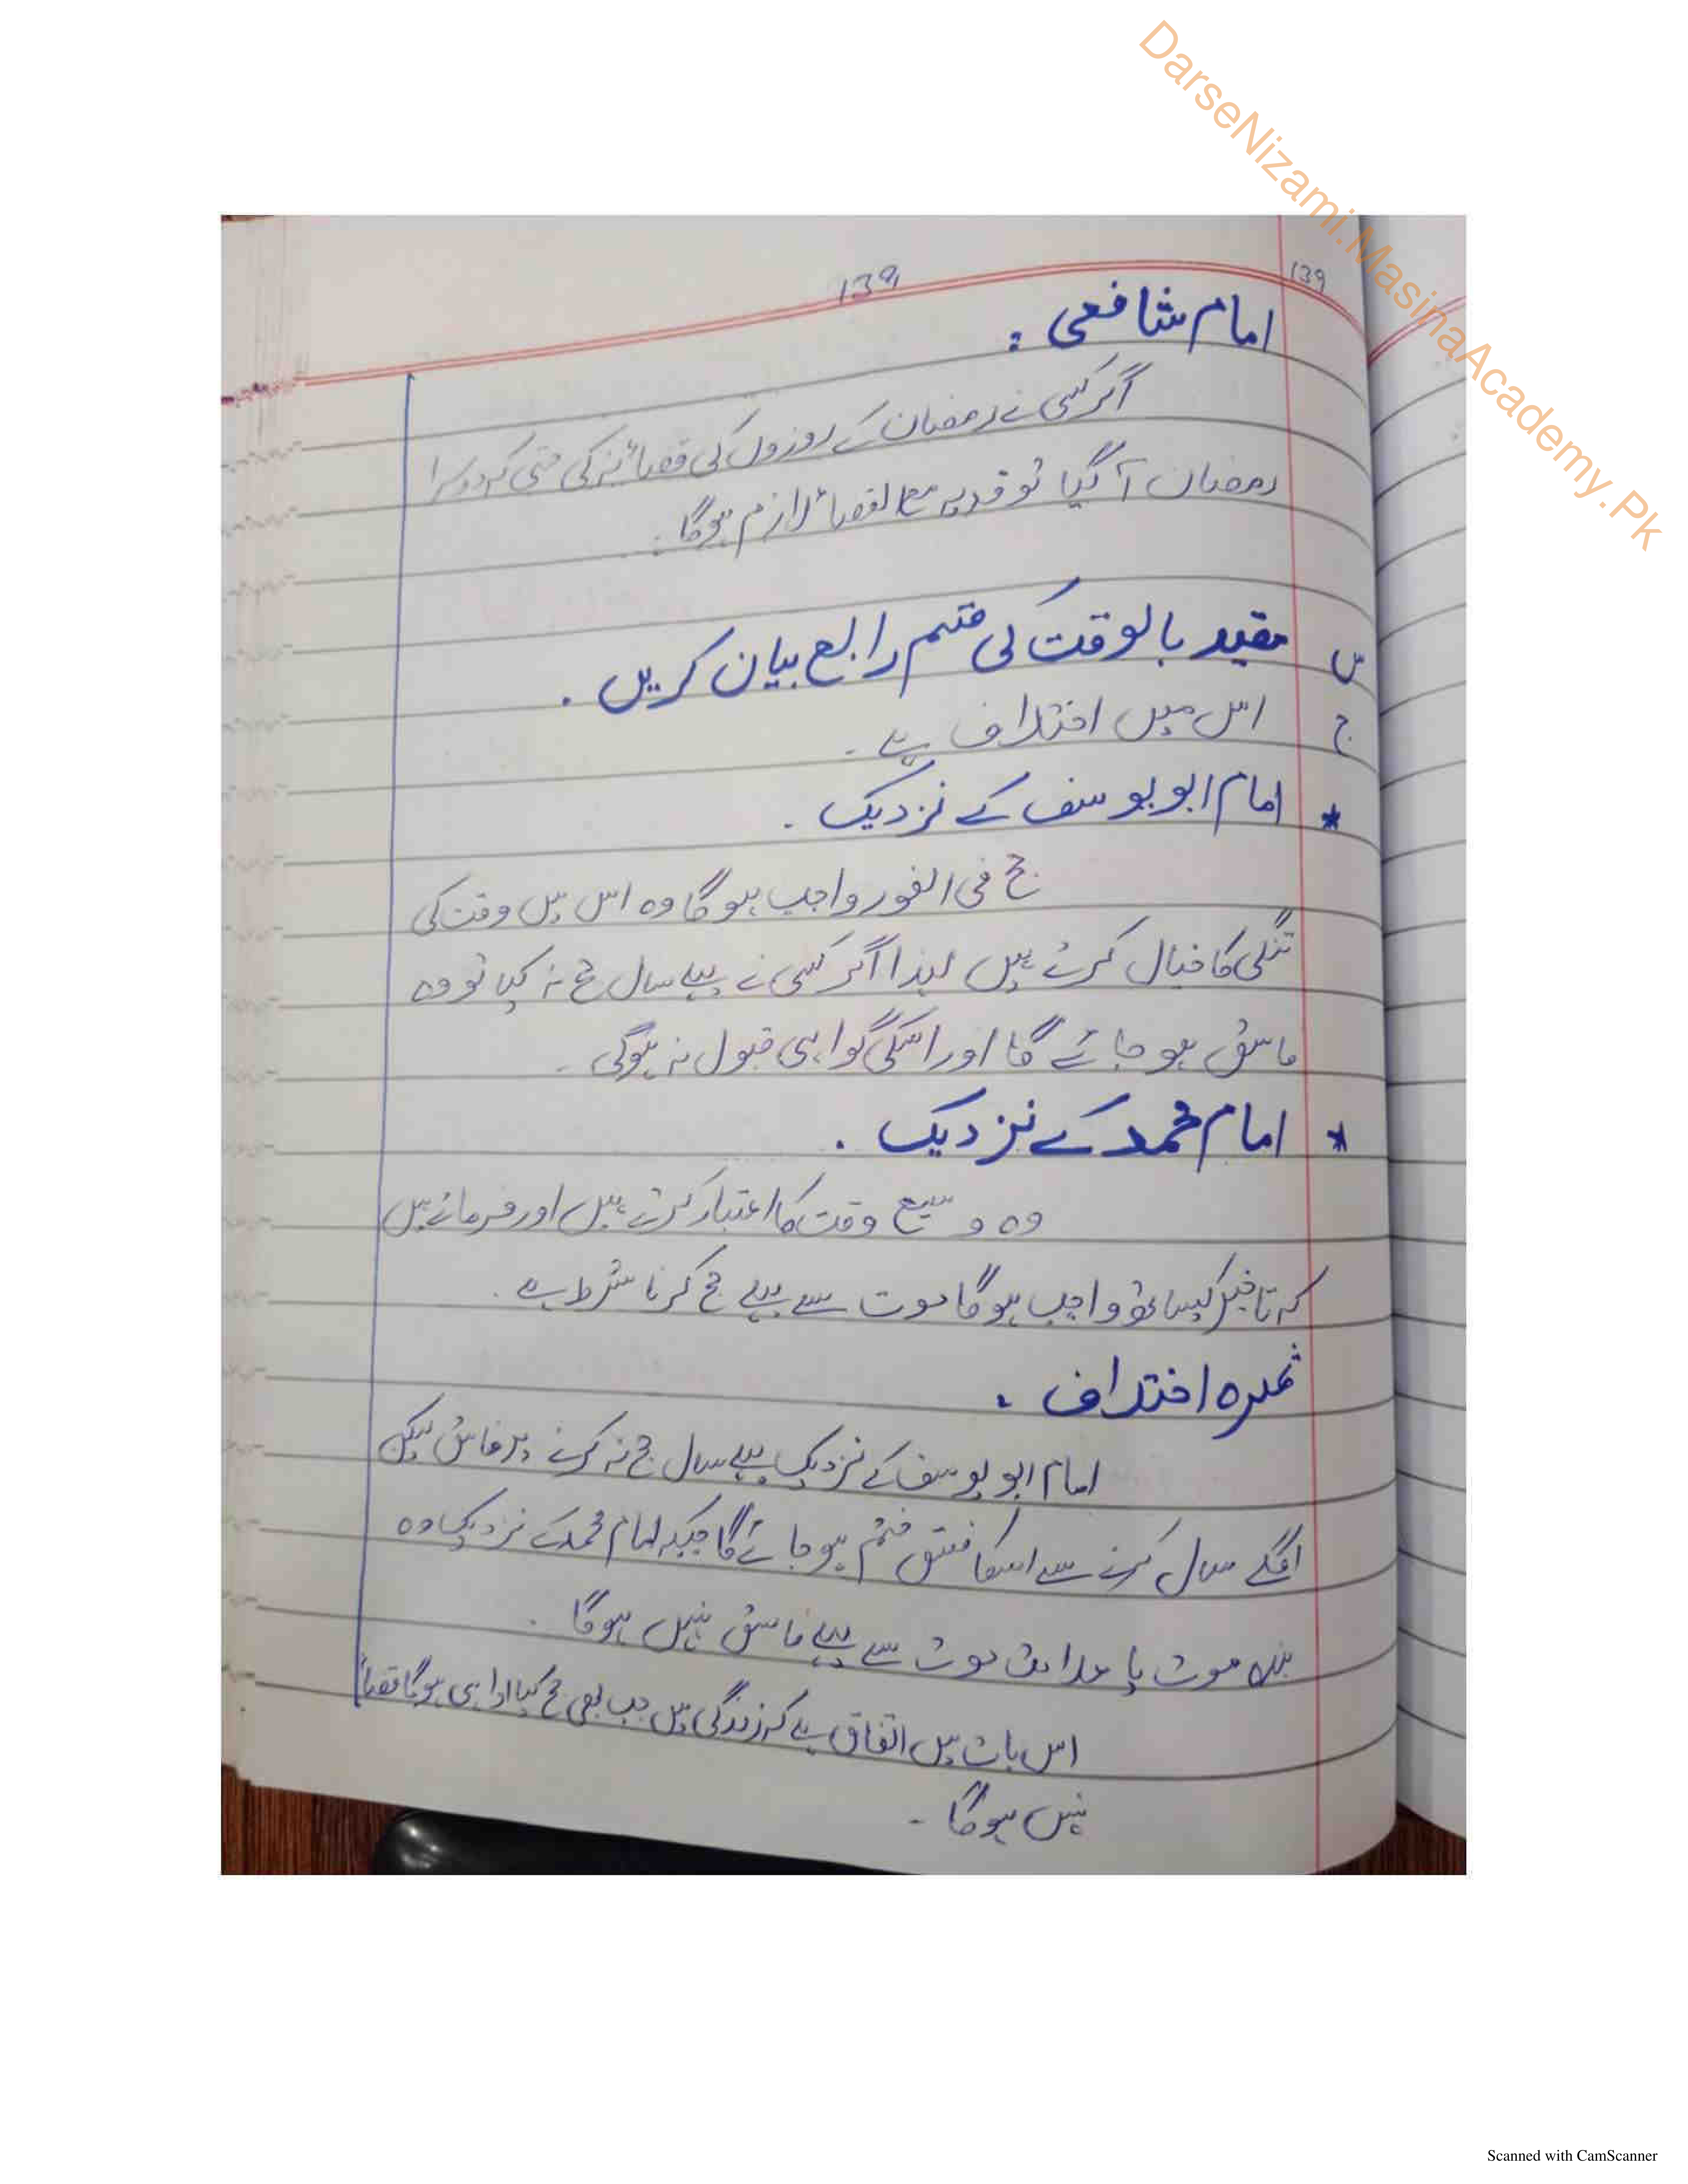 DarseNizami.MasinaAcademy.Pk
139
139
امام شافعی :
اگر کسی نے رمضان کے روزوں کی قضاء نہ کی حتی کہ دوسرا
رمضان آ گیا تو فدیہ مع القضاء لازم ہوگا ۔
س مقید بالوقت کی قسم رابع بیان کریں ۔
ج اس میں اختلاف ہے ۔
* امام ابو یوسف کے نزدیک ۔
حج فی الفور واجب ہوگا وہ اس میں وقت کی
تنگی کا خیال کرتے ہیں لہذا اگر کسی نے پہلے سال حج نہ کیا تو وہ
فاسق ہو جائے گا اور اسکی گواہی قبول نہ ہوگی ۔
* امام محمد کے نزدیک ۔
وہ وسیع وقت کا اعتبار کرتے ہیں اور فرماتے ہیں
کہ تاخیر کیساتھ واجب ہوگا موت سے پہلے حج کرنا شرط ہے ۔
ثمرہ اختلاف ۔
امام ابو یوسف کے نزدیک پہلے سال حج نہ کرنے پر فاسق لیکن
اگلے سال کرنے سے اسکا فسق ختم ہو جائے گا جبکہ امام محمد کے نزدیک وہ
بندہ موت یا علامت موت سے پہلے فاسق نہیں ہوگا ۔
اس بات میں اتفاق ہے کہ زندگی میں جب بھی حج کیا ادا ہی ہوگا قضاءً
نہیں ہوگا ۔
Scanned with CamScanner